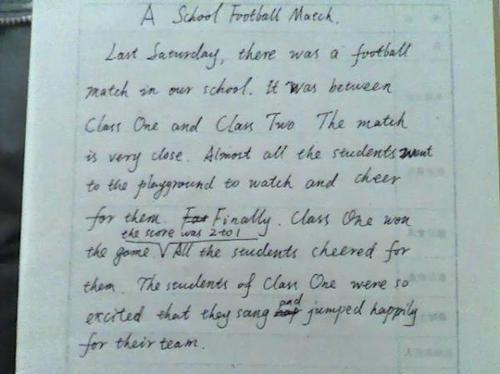 A School Football Match.
Last Saturday, there was a football
match in our school. It was between
Class One and Class Two The match
is very close. Almost all the students went
to the playground to watch and cheer
for them. Finally. Class One won
the score was 2 to 1
the game. All the students cheered for
them. The students of Class One were so
excited that they sang and jumped happily
for their team.